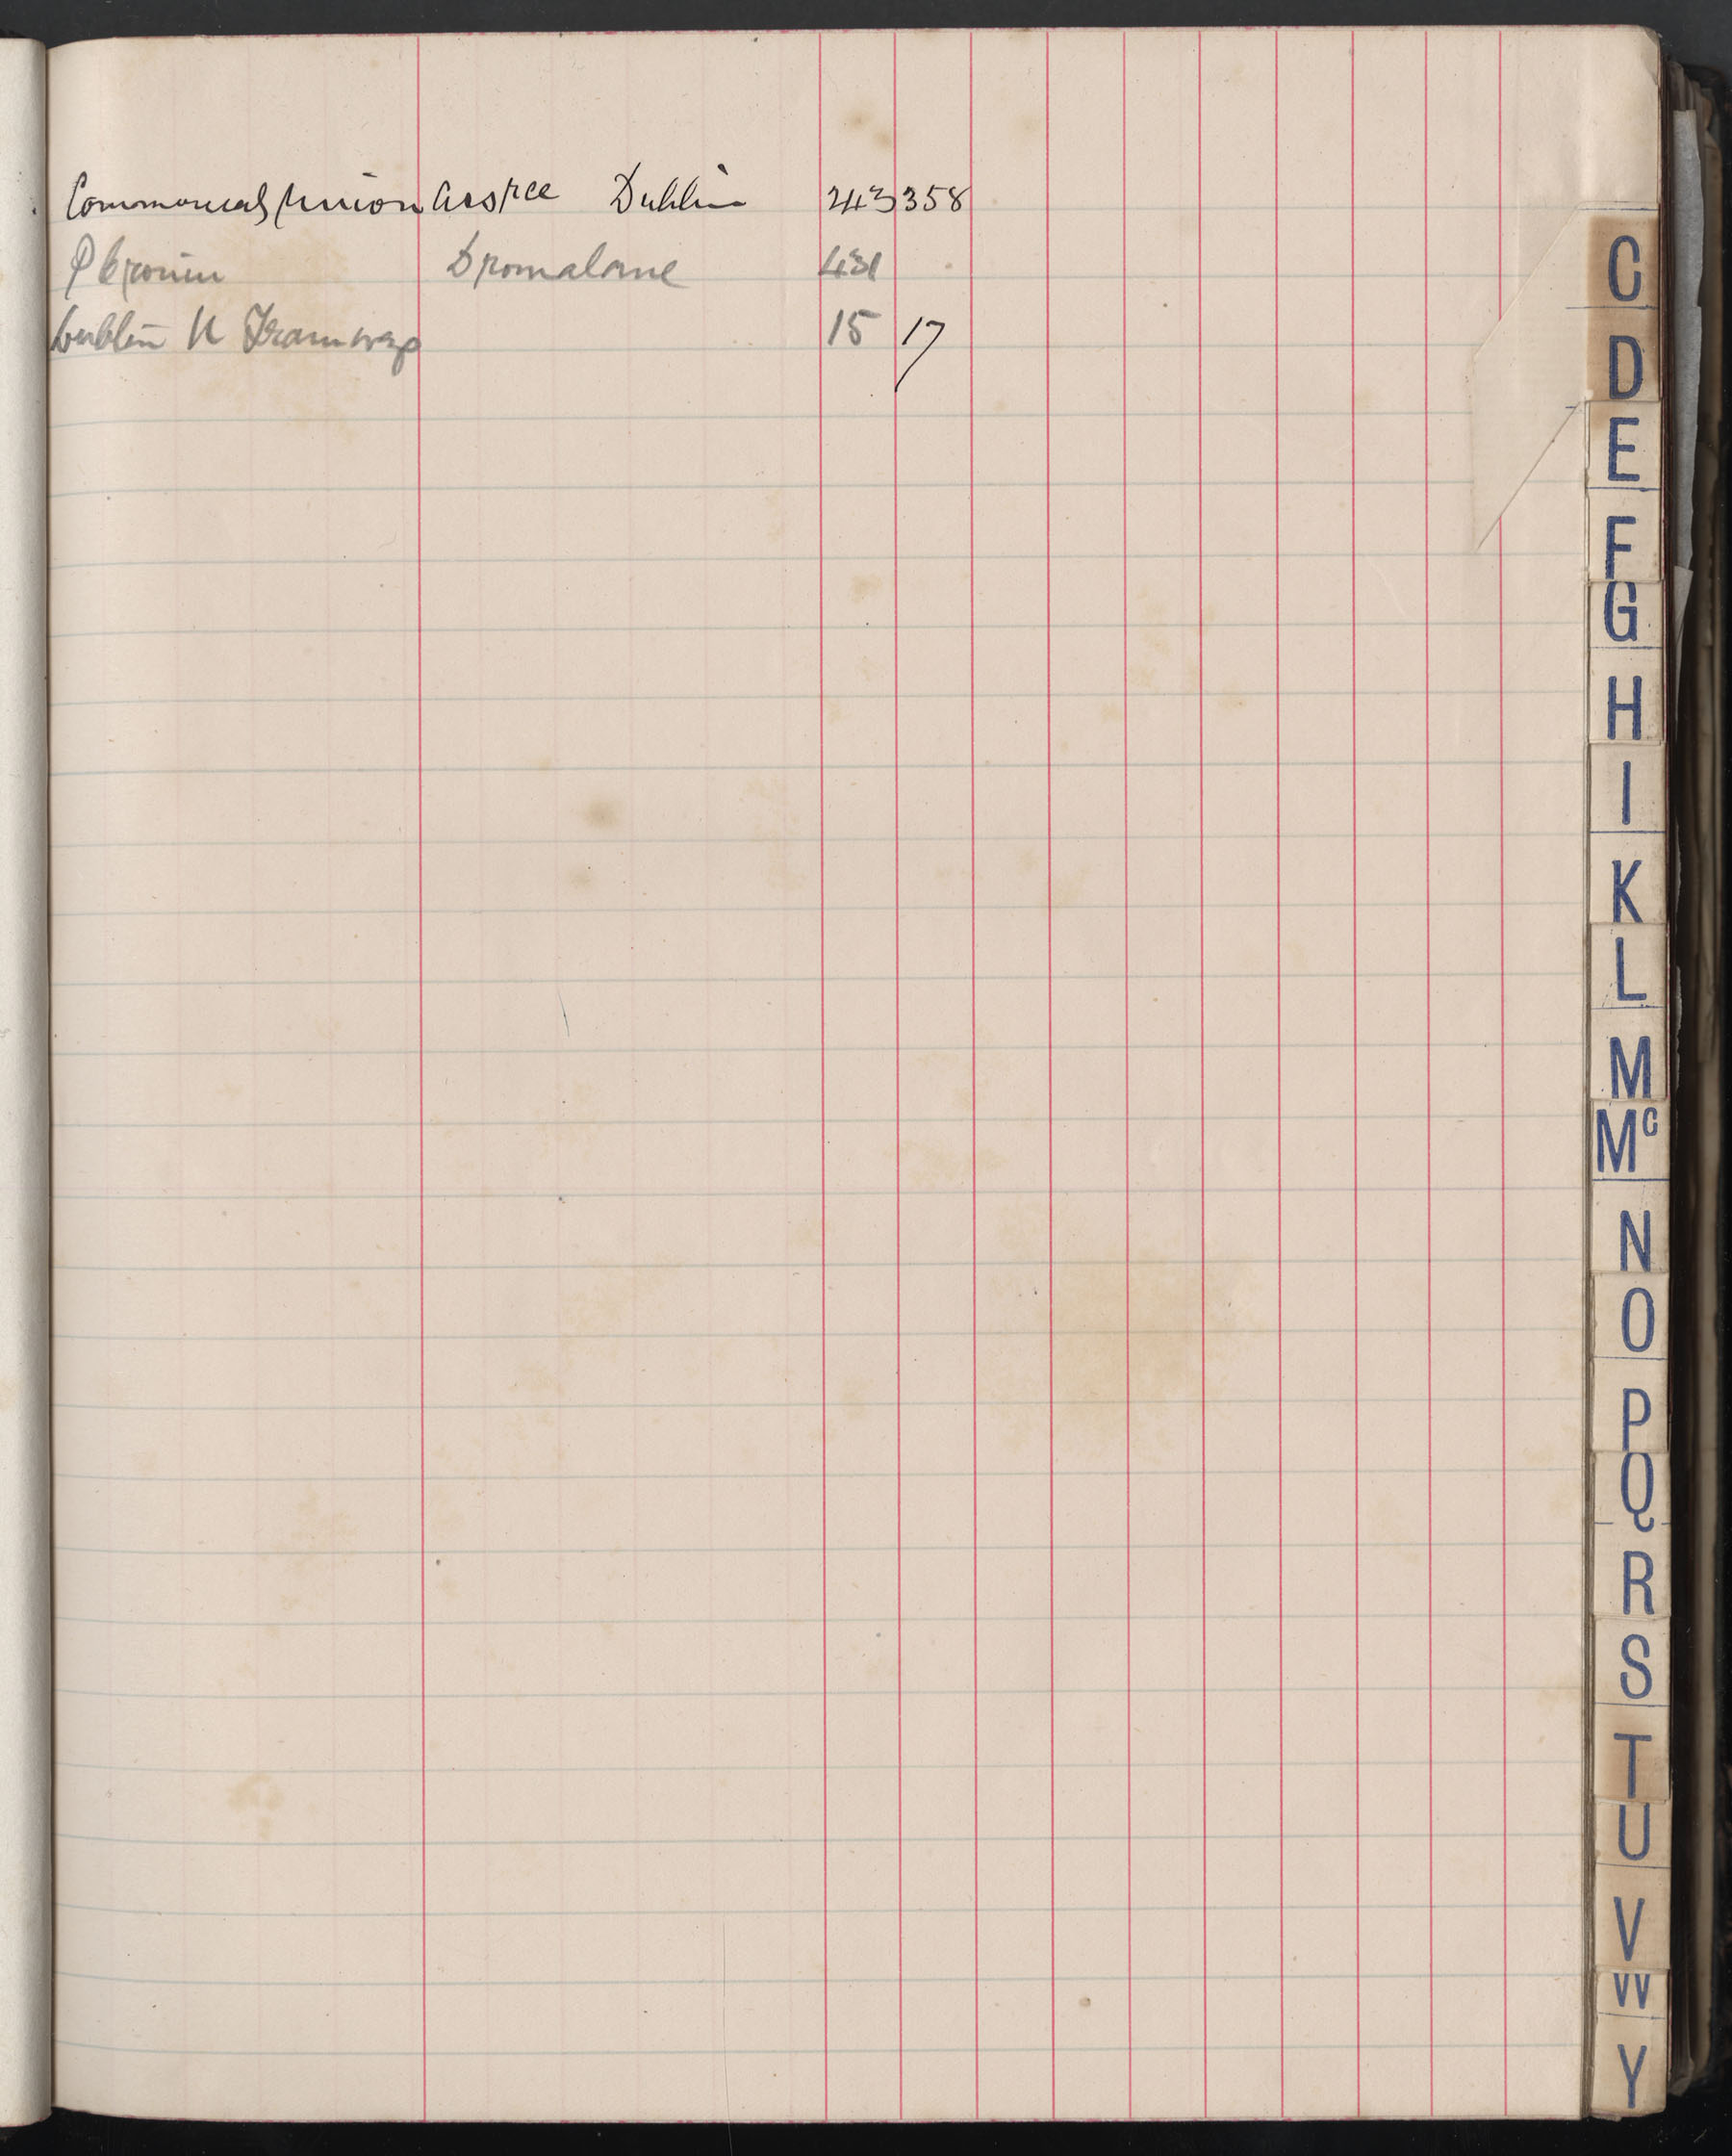 Commercial Union Assce Dublin 243 358
P Cronin Dromalane 431
Dublin U Tramways 15 17
C
D
E
F
G
H
I
K
L
M
Mc
N
O
P
Q
R
S
T
U
V
W
Y